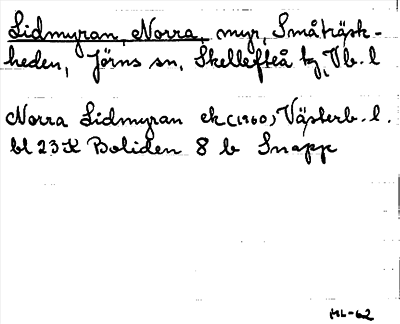 Lidmyran, Norra, myr, Småträsk-
heden, Jörns sn, Skellefteå tg, Vb. l
Norra Lidmyran ek (1960), Västerb. l.
bl 23 K Boliden 8 b Snapp
ML-62